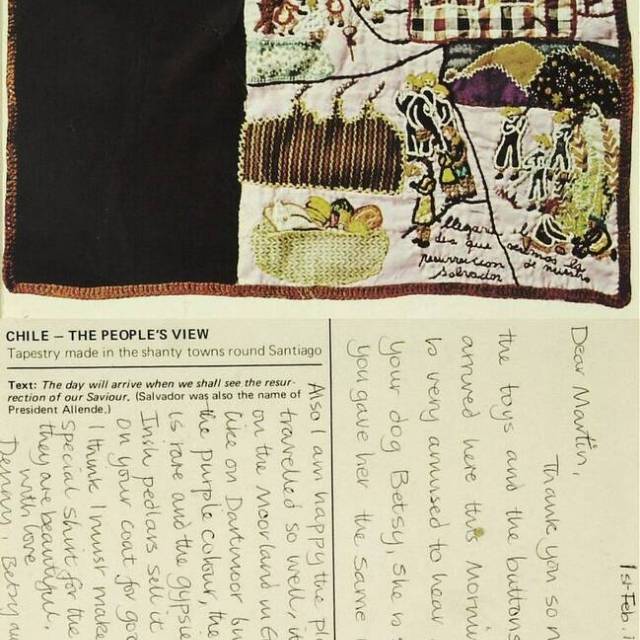 llegara el
dia que veremos la
resurreccion de nuestro
Salvador
CHILE – THE PEOPLE'S VIEW
Tapestry made in the shanty towns round Santiago
Text: The day will arrive when we shall see the resur-
rection of our Saviour. (Salvador was also the name of
President Allende.)
1st Feb.
Dear Martin,
Thank you so
the toys and the button
arrived here this
is very amused to hear
your dog Betsy, she is
you gave her the same
Also I am happy the
travelled so well, it
on the moorland in
like on Dartmoor
the purple colour, the
is rare and the
Irish pedlars sell it
on your coat for
I think I must make
special shirt for the
they are beautiful.
with love
Denny, Betsy